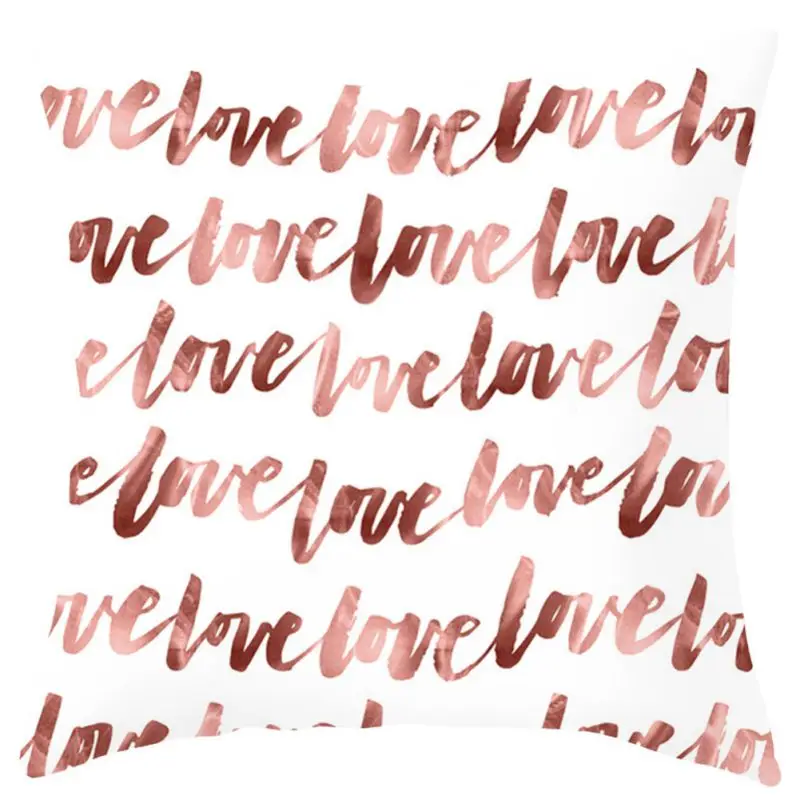 ovelovelovelovelo
ovelovelovelovel
elovelovelovelo
elovelovelovelo
ovelovelovelovelo
lovelovelovelovelove